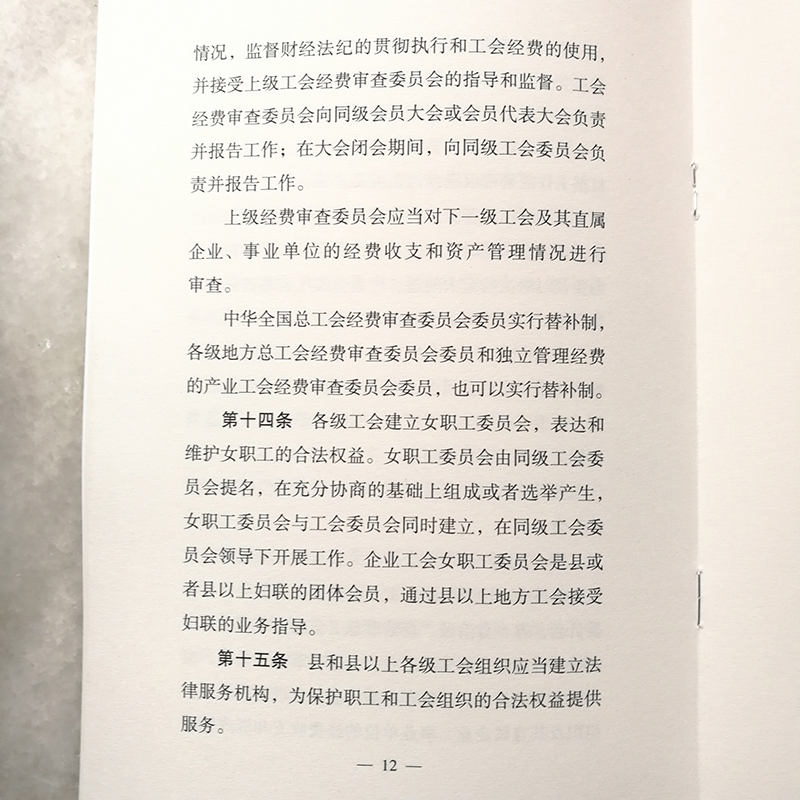 情况，监督财经法纪的贯彻执行和工会经费的使用，
并接受上级工会经费审查委员会的指导和监督。工会
经费审查委员会向同级会员大会或会员代表大会负责
并报告工作；在大会闭会期间，向同级工会委员会负
责并报告工作。
上级经费审查委员会应当对下一级工会及其直属
企业、事业单位的经费收支和资产管理情况进行
审查。
中华全国总工会经费审查委员会委员实行替补制，
各级地方总工会经费审查委员会委员和独立管理经费
的产业工会经费审查委员会委员，也可以实行替补制。
第十四条 各级工会建立女职工委员会，表达和
维护女职工的合法权益。女职工委员会由同级工会委
员会提名，在充分协商的基础上组成或者选举产生，
女职工委员会与工会委员会同时建立，在同级工会委
员会领导下开展工作。企业工会女职工委员会是县或
者县以上妇联的团体会员，通过县以上地方工会接受
妇联的业务指导。
第十五条 县和县以上各级工会组织应当建立法
律服务机构，为保护职工和工会组织的合法权益提供
服务。
— 12 —